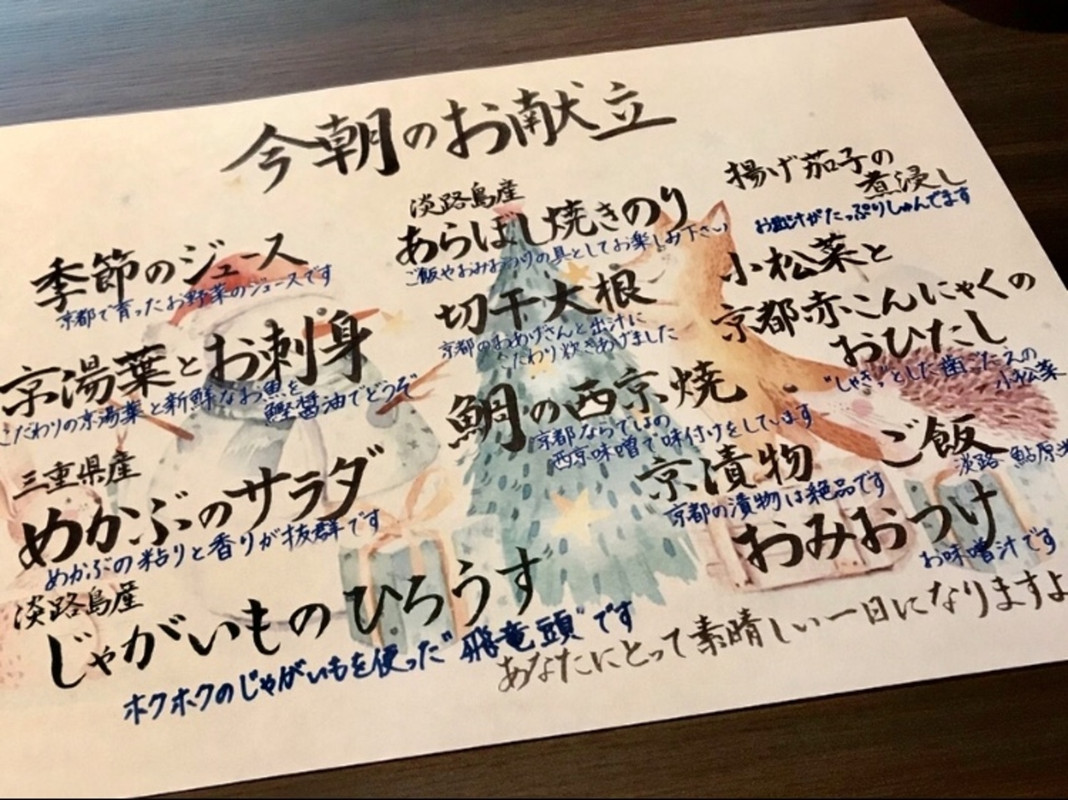 今朝のお献立
季節のジュース
京都で育ったお野菜のジュースです
京湯葉とお刺身
こだわりの京湯葉と新鮮なお魚を
鰹醤油でどうぞ
三重県産
めかぶのサラダ
めかぶの粘りと香りが抜群です
淡路島産
じゃがいものひろうす
ホクホクのじゃがいもを使った"飛竜頭"です
淡路島産
あらぼし焼きのり
ご飯やおみおつけの具としてお楽しみ下さい
切干大根
京都のおあげさんと出汁に
こだわり炊きあげました
鯛の西京焼
京都ならではの
西京味噌で味付けをしています
揚げ茄子の
煮浸し
お出汁がたっぷりしゅんでます
小松菜と
京都赤こんにゃくの
おひたし
"しゃきっ"とした歯ごたえの
小松菜
京漬物
京都の漬物は絶品です
ご飯
淡路 鮎原米
おみおつけ
お味噌汁です
あなたにとって素晴しい一日になりますよ